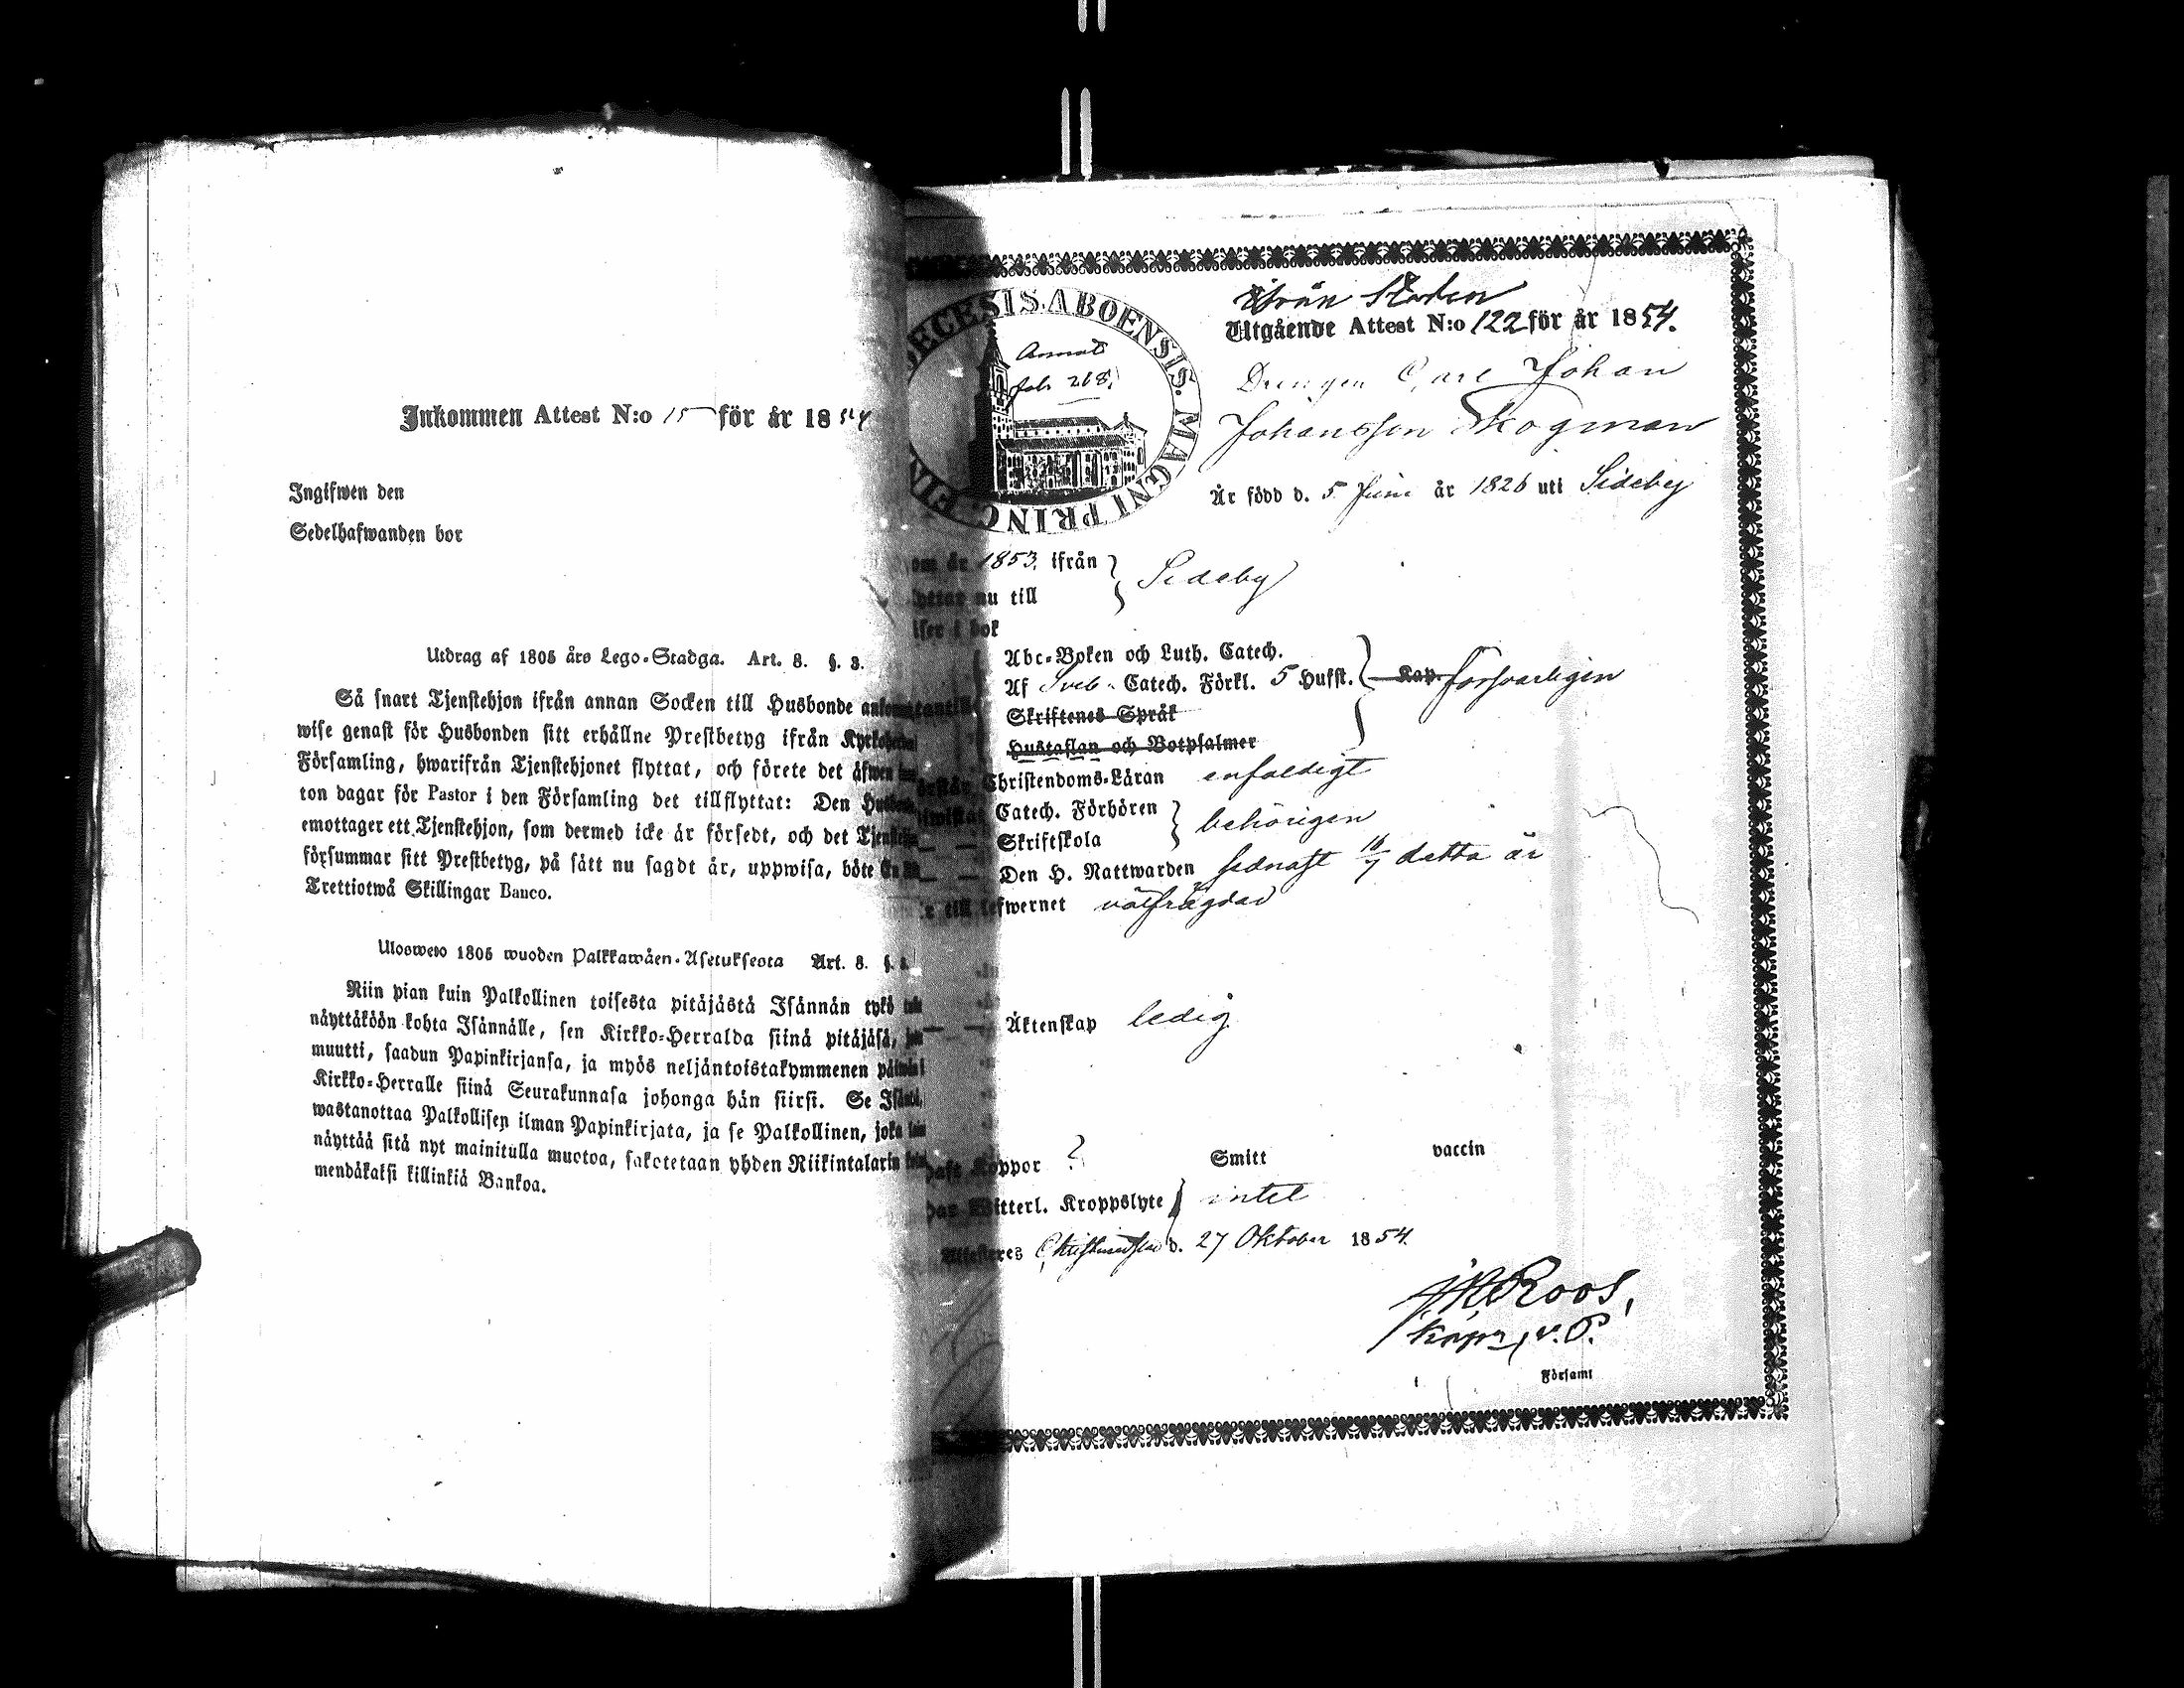 Inkommen Attest N:o 15 för år 1854
Ingifwen den
Sedelhafwanden bor
Utdrag af 1805 års Lego-Stadga. Art. 8. §. 3.
Så snart Tjenstehjon ifrån annan Socken till Husbonde
wise genast för Husbonden sitt erhållne Prestbetyg ifrån
Församling, hwarifrån Tjenstehjonet flyttat, och förete det äfwen
ton dagar för Pastor i den Församling det tillflyttat: Den
emottager ett Tjenstehjon, som dermed icke är försedt, och det
försummar sitt Prestbetyg, på sätt nu sagdt är, uppwisa, böte En
Trettiotwå Skillingar Banco.
Uloswето 1805 wuoden Palkkawäen-Asetuksesta Art. 8. §.
Niin pian kuin Palkollinen toisesta pitäjästä Isännän tykö
näyttäköön kohta Isännälle, sen Kirkko-Herralda siinä pitäjäsä,
muutti, saadun Papinkirjansa, ja myös neljäntoistakymmenen
Kirkko-Herralle siinä Seurakunnasa johonga hän siirsi. Se
wastanottaa Palkollisen ilman Papinkirjata, ja se Palkollinen, joka
näyttää sitä nyt mainitulla muotoa, sakotetaan yhden Riikintalarin
mendäkaksi killinkiä Bankoa.
ECESIS ABOENSIS. MAGNI PRINC. FIN
Annot
fol. 268.
ifrån Staden
Utgående Attest N:o 122 för år 1854.
Drengen Carl Johan
Johansson Skogman
Är född d. 5 Juni år 1826 uti Sideby
om år 1853. ifrån
nu till
Sideby
i bok
Abc-Boken och Luth. Catech.
Af Sveb. Catech. Förkl. 5 Hufst. Kap. försvarligen
Skriftenes Språk
Hustaflan och Botpsalmer
Christendoms-Läran enfaldigt
Catech. Förhören
Skriftskola
behörigen
Den H. Nattwarden sednast 16/7 detta år
till lefwernet välfrägdad
Äktenskap ledig
haft Koppor ? Smitt vaccin
Har Witterl. Kroppslyte intet
Attesteres Christinestad d. 27 Oktober 1854.
Roos,
v. P.
Församl